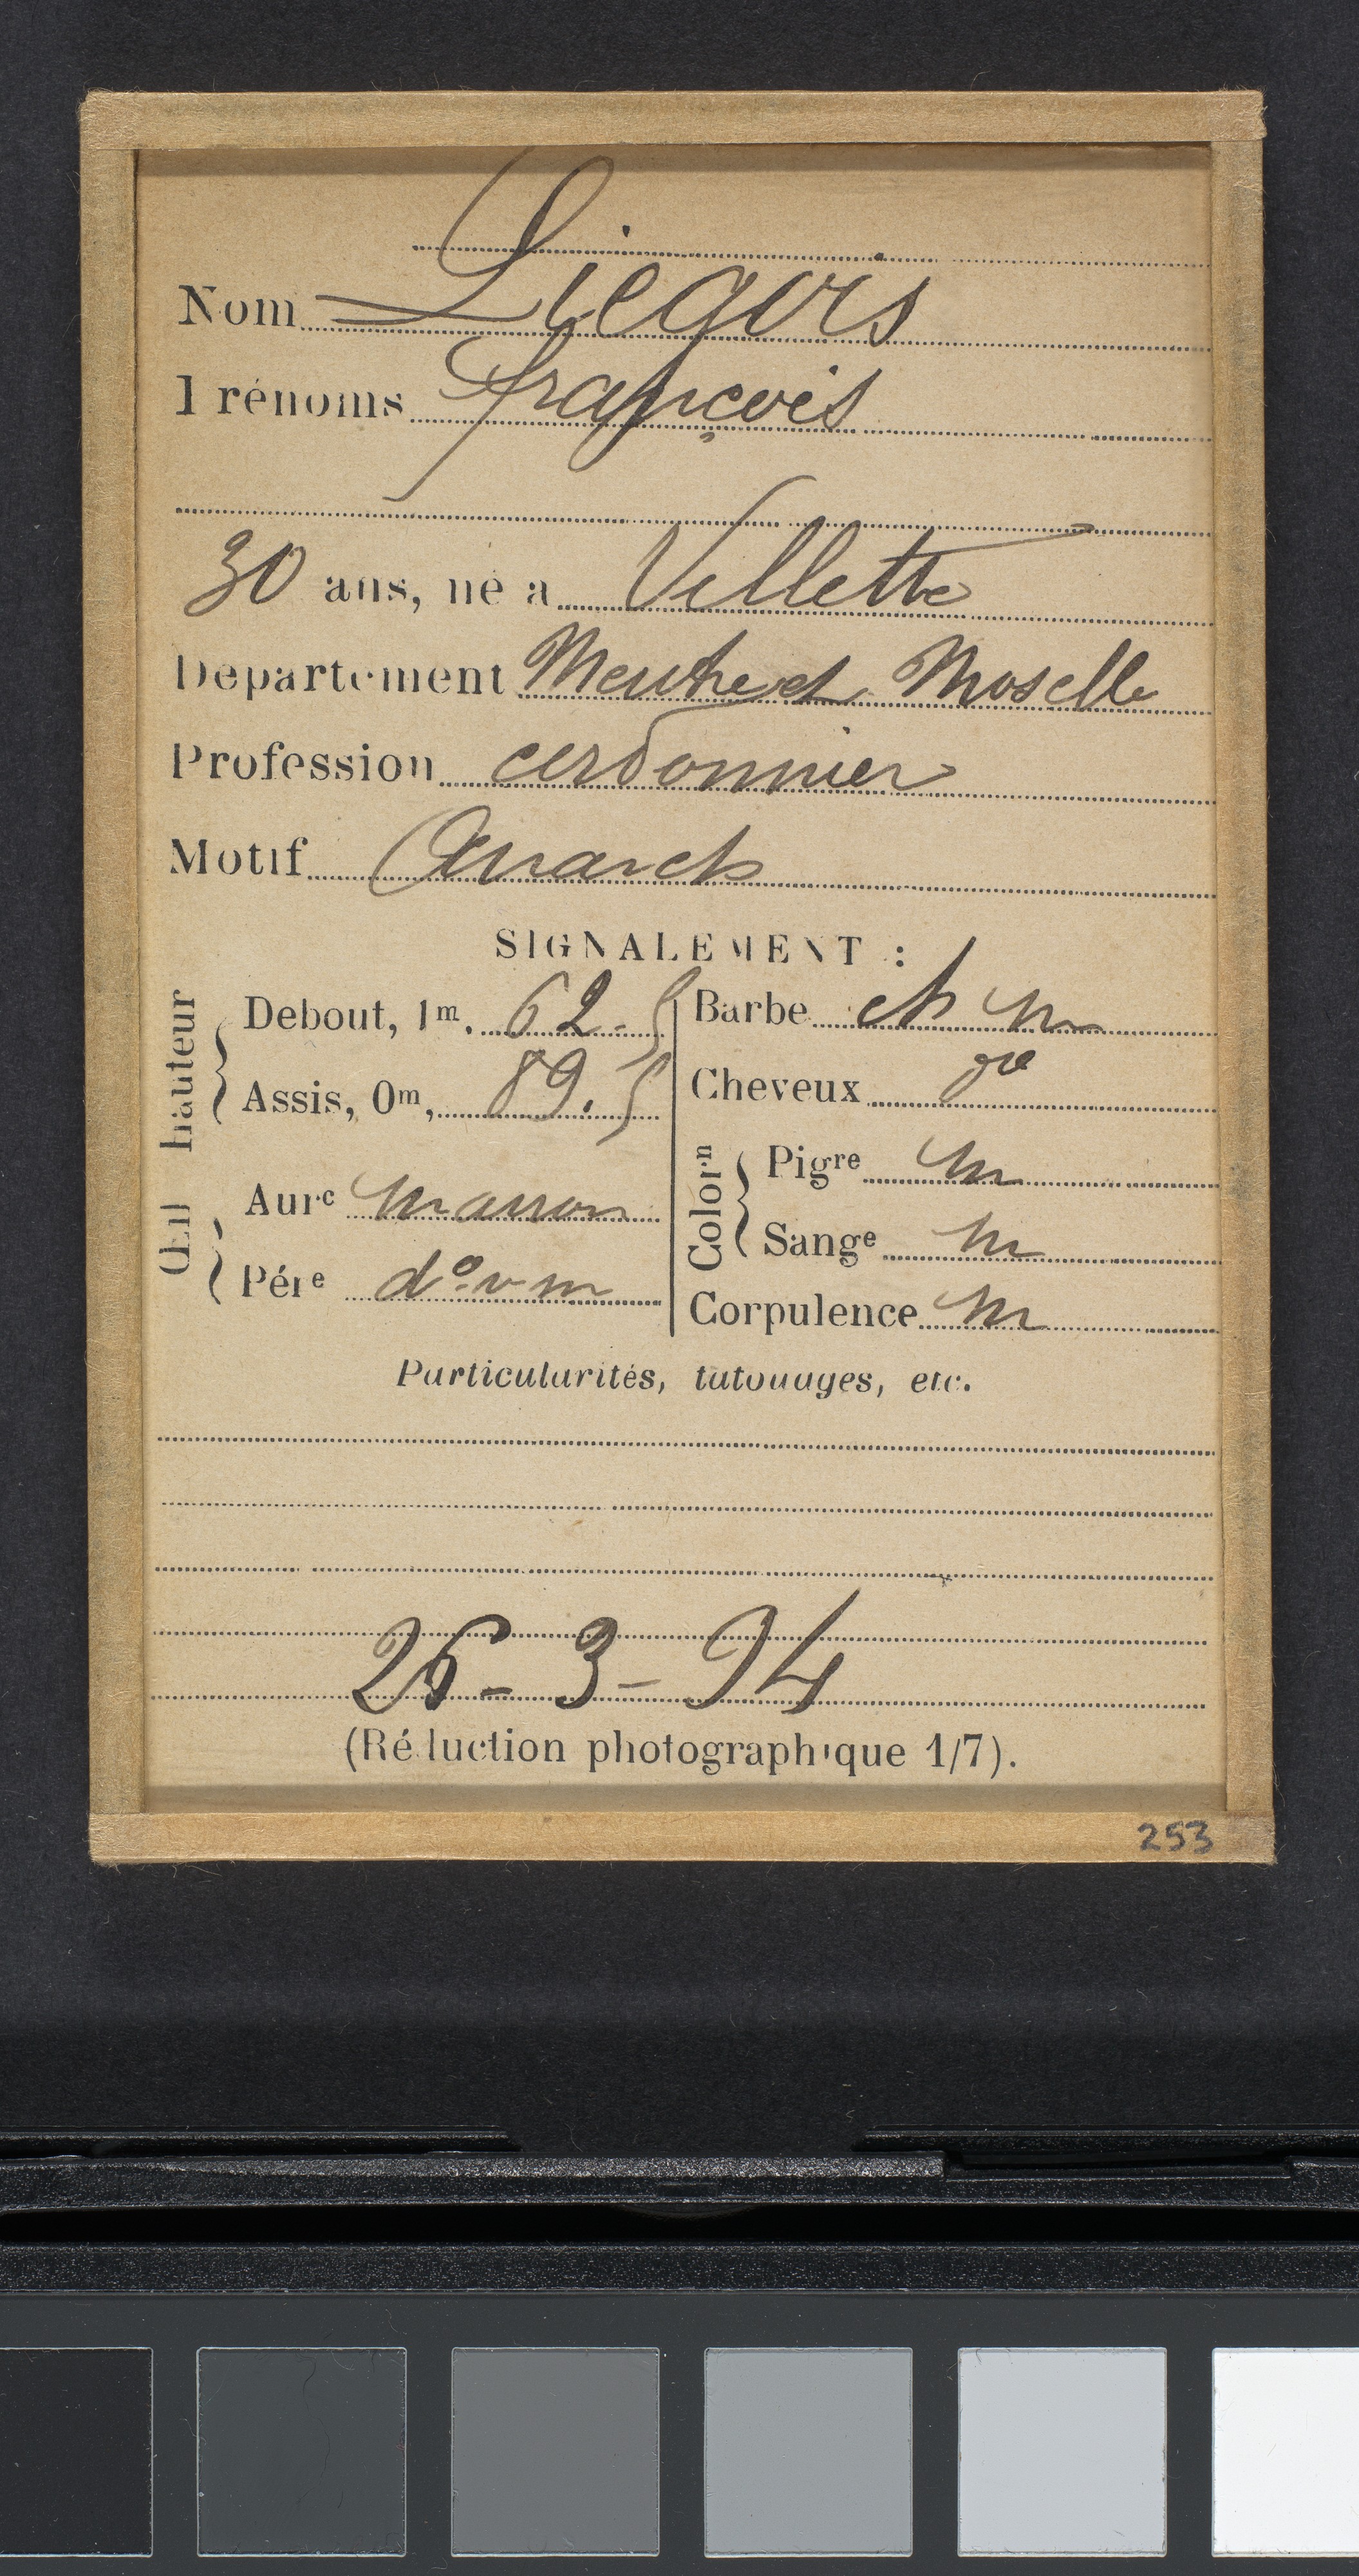 Nom Liégois
Prénoms François
30 ans, né à Villette
Département Meurthe et Moselle
Profession cordonnier
Motif Anarch
SIGNALEMENT :
Œil hauteur
Debout, 1m, 62.5
Assis, 0m, 89.5
Aurc marron
Pére do v m
Barbe ch m
Cheveux
Colorn
Pigre m
Sange m
Corpulence m
Particularités, tatouages, etc.
26-3-94
(Réduction photographique 1/7).
253